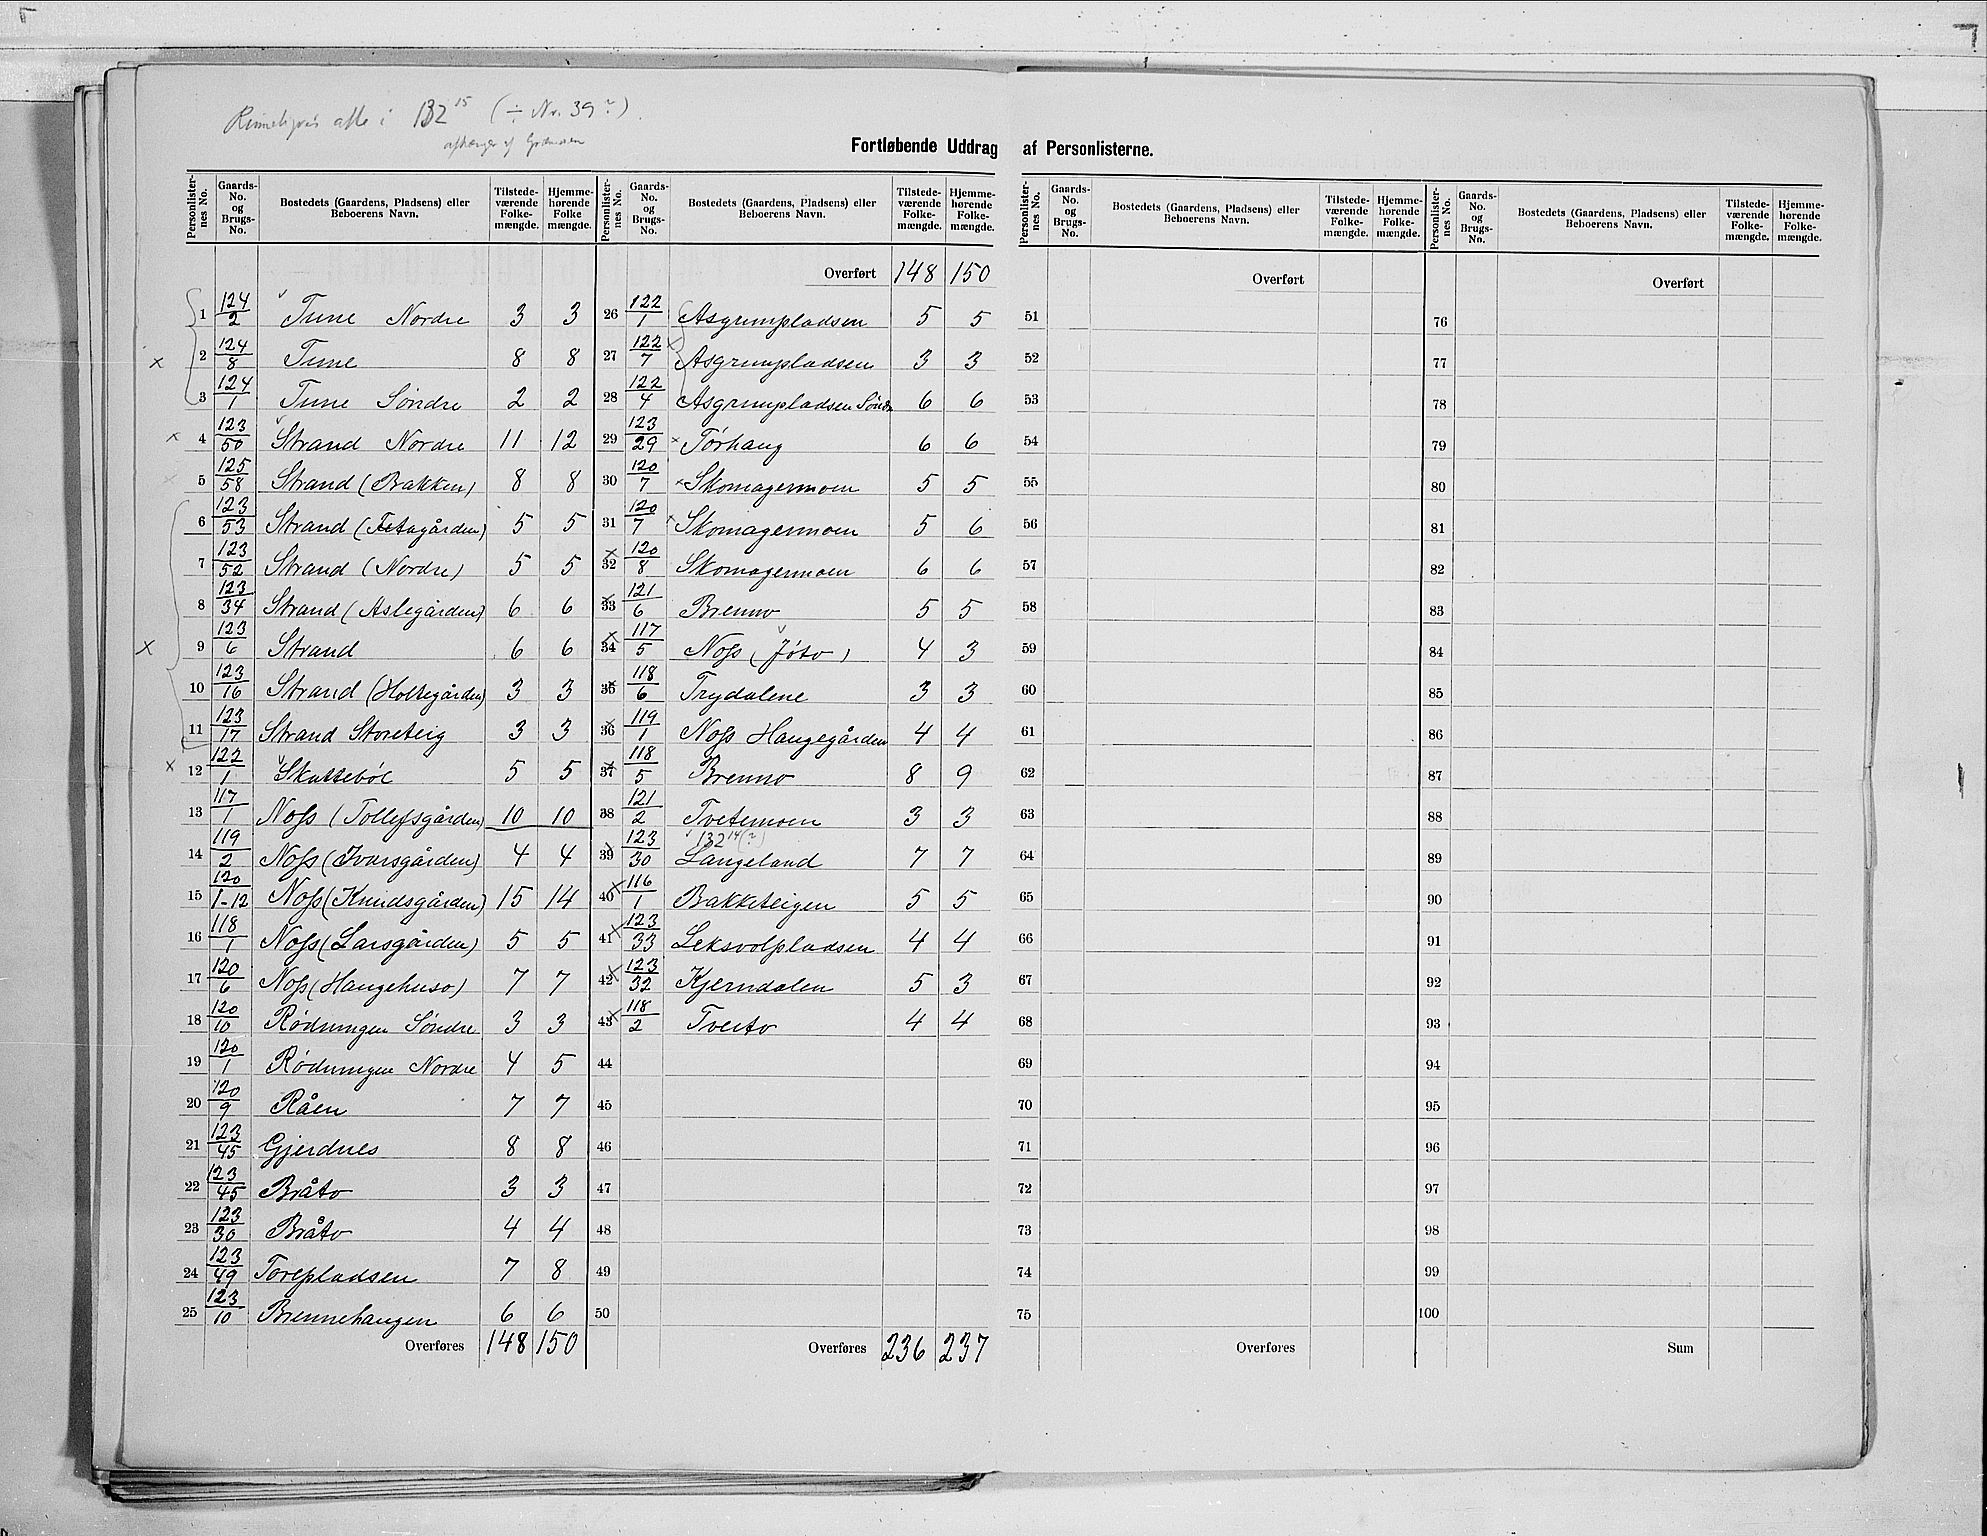 132 15 (÷ Nr. 39?)
Fortløbende Uddrag af Personlisterne.
Personlister-nes No. Gaards-No. og Brugs-No. Bostedets (Gaardens, Pladsens) eller Beboerens Navn. Tilstede-værende Folke-mængde. Hjemme-hørende Folke mængde.
Personlister-nes No. Gaards-No. og Brugs-No. Bostedets (Gaardens, Pladsens) eller Beboerens Navn. Tilstede-værende Folke-mængde. Hjemme-hørende Folke-mængde.
Personlister-nes No. Gaards-No. og Brugs-No. Bostedets (Gaardens, Pladsens) eller Beboerens Navn. Tilstede-værende Folke-mængde. Hjemme-hørende Folke-mængde.
Personlister-nes No. Gaards-No. og Brugs-No. Bostedets (Gaardens, Pladsens) eller Beboerens Navn. Tilstede-værende Folke-mængde. Hjemme-hørende Folke-mængde.
1 124/2 Tune Nordre 3 3
2 124/8 Tune 8 8
3 124/1 Tune Söndre 2 2
4 123/50 Strand Nordre 11 12
5 125/58 Strand (Bakken) 8 8
6 123/53 Strand (Fetagården) 5 5
7 123/52 Strand (Nordre) 5 5
8 123/34 Strand (Aslegården) 6 6
9 123/6 Strand 6 6
10 123/16 Strand (Holtegården) 3 3
11 123/17 Strand Storeteig 3 3
12 122/1 Skattebøl 5 5
13 117/1 Noss (Tollefsgården) 10 10
14 119/2 Noss (Ivarsgården) 4 4
15 120/1-12 Noss (Knudsgården) 15 14
16 118/1 Noss (Larsgården) 5 5
17 120/6 Noss (Haugehuso) 7 7
18 120/10 Rødningen Söndre 3 3
19 120/1 Rødningen Nordre 4 5
20 120/9 Råen 7 7
21 123/45 Gjerdnes 8 8
22 123/45 Bråto 3 3
23 123/30 Bråto 4 4
24 123/49 Torepladsen 7 8
25 123/10 Brennehaugen 6 6
Overføres 148 150
Overført 148 150
26 122/1 Asgrimpladsen 5 5
27 122/7 Asgrimpladsen 3 3
28 122/4 Asgrimpladsen Söndre 6 6
29 123/29 Tørhaug 6 6
30 120/7 Skomagermoen 5 5
31 120/7 Skomagermoen 5 6
32 120/8 Skomagermoen 6 6
33 121/6 Brenno 5 5
34 117/5 Noss (Jöto) 4 3
35 118/6 Trydalene 3 3
36 119/1 Noss Haugegården 4 4
37 118/5 Brenno 8 9
38 121/2 Tvetemoen 3 3
132 14 (?)
39 123/30 Langeland 7 7
40 116/1 Bakketeigen 5 5
41 123/33 Leksvolpladsen 4 4
42 123/32 Kjerndalen 5 3
43 118/2 Tveito 4 4
44
45
46
47
48
49
50
Overføres 236 237
Overført
51
52
53
54
55
56
57
58
59
60
61
62
63
64
65
66
67
68
69
70
71
72
73
74
75
Overføres
Overført
76
77
78
79
80
81
82
83
84
85
86
87
88
89
90
91
92
93
94
95
96
97
98
99
100
Sum